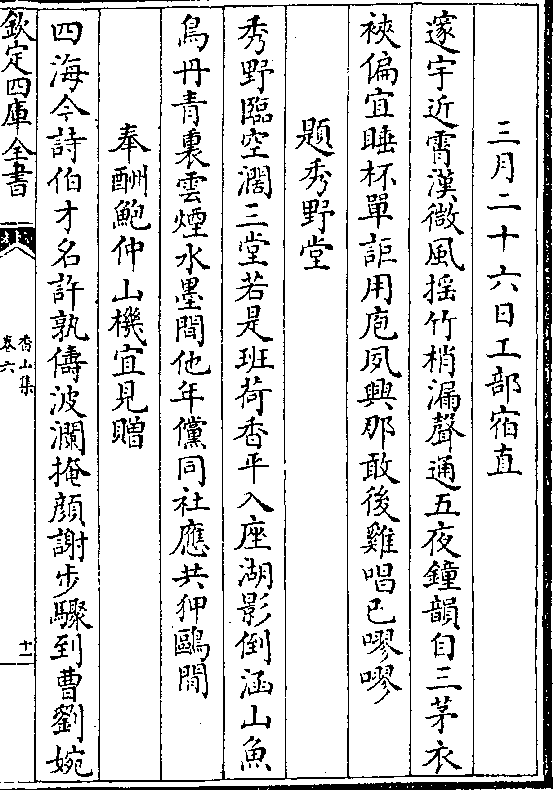 三月二十六日工部宿直
邃宇近霄漢微風揺竹梢漏聲通五夜鐘韻自三茅衣
裌偏宜睡杯單詎用庖夙興那敢後雞唱已嘐嘐
題秀野堂
秀野臨空濶三堂若是班荷香平入座湖影倒涵山魚
鳥丹青裏雲煙水墨間他年儻同社應共狎鷗閒
奉酬鮑仲山機宜見贈
四海今詩伯才名許孰儔波瀾掩顔謝步驟到曹劉婉
欽定四庫全書
香山集
卷六
十二